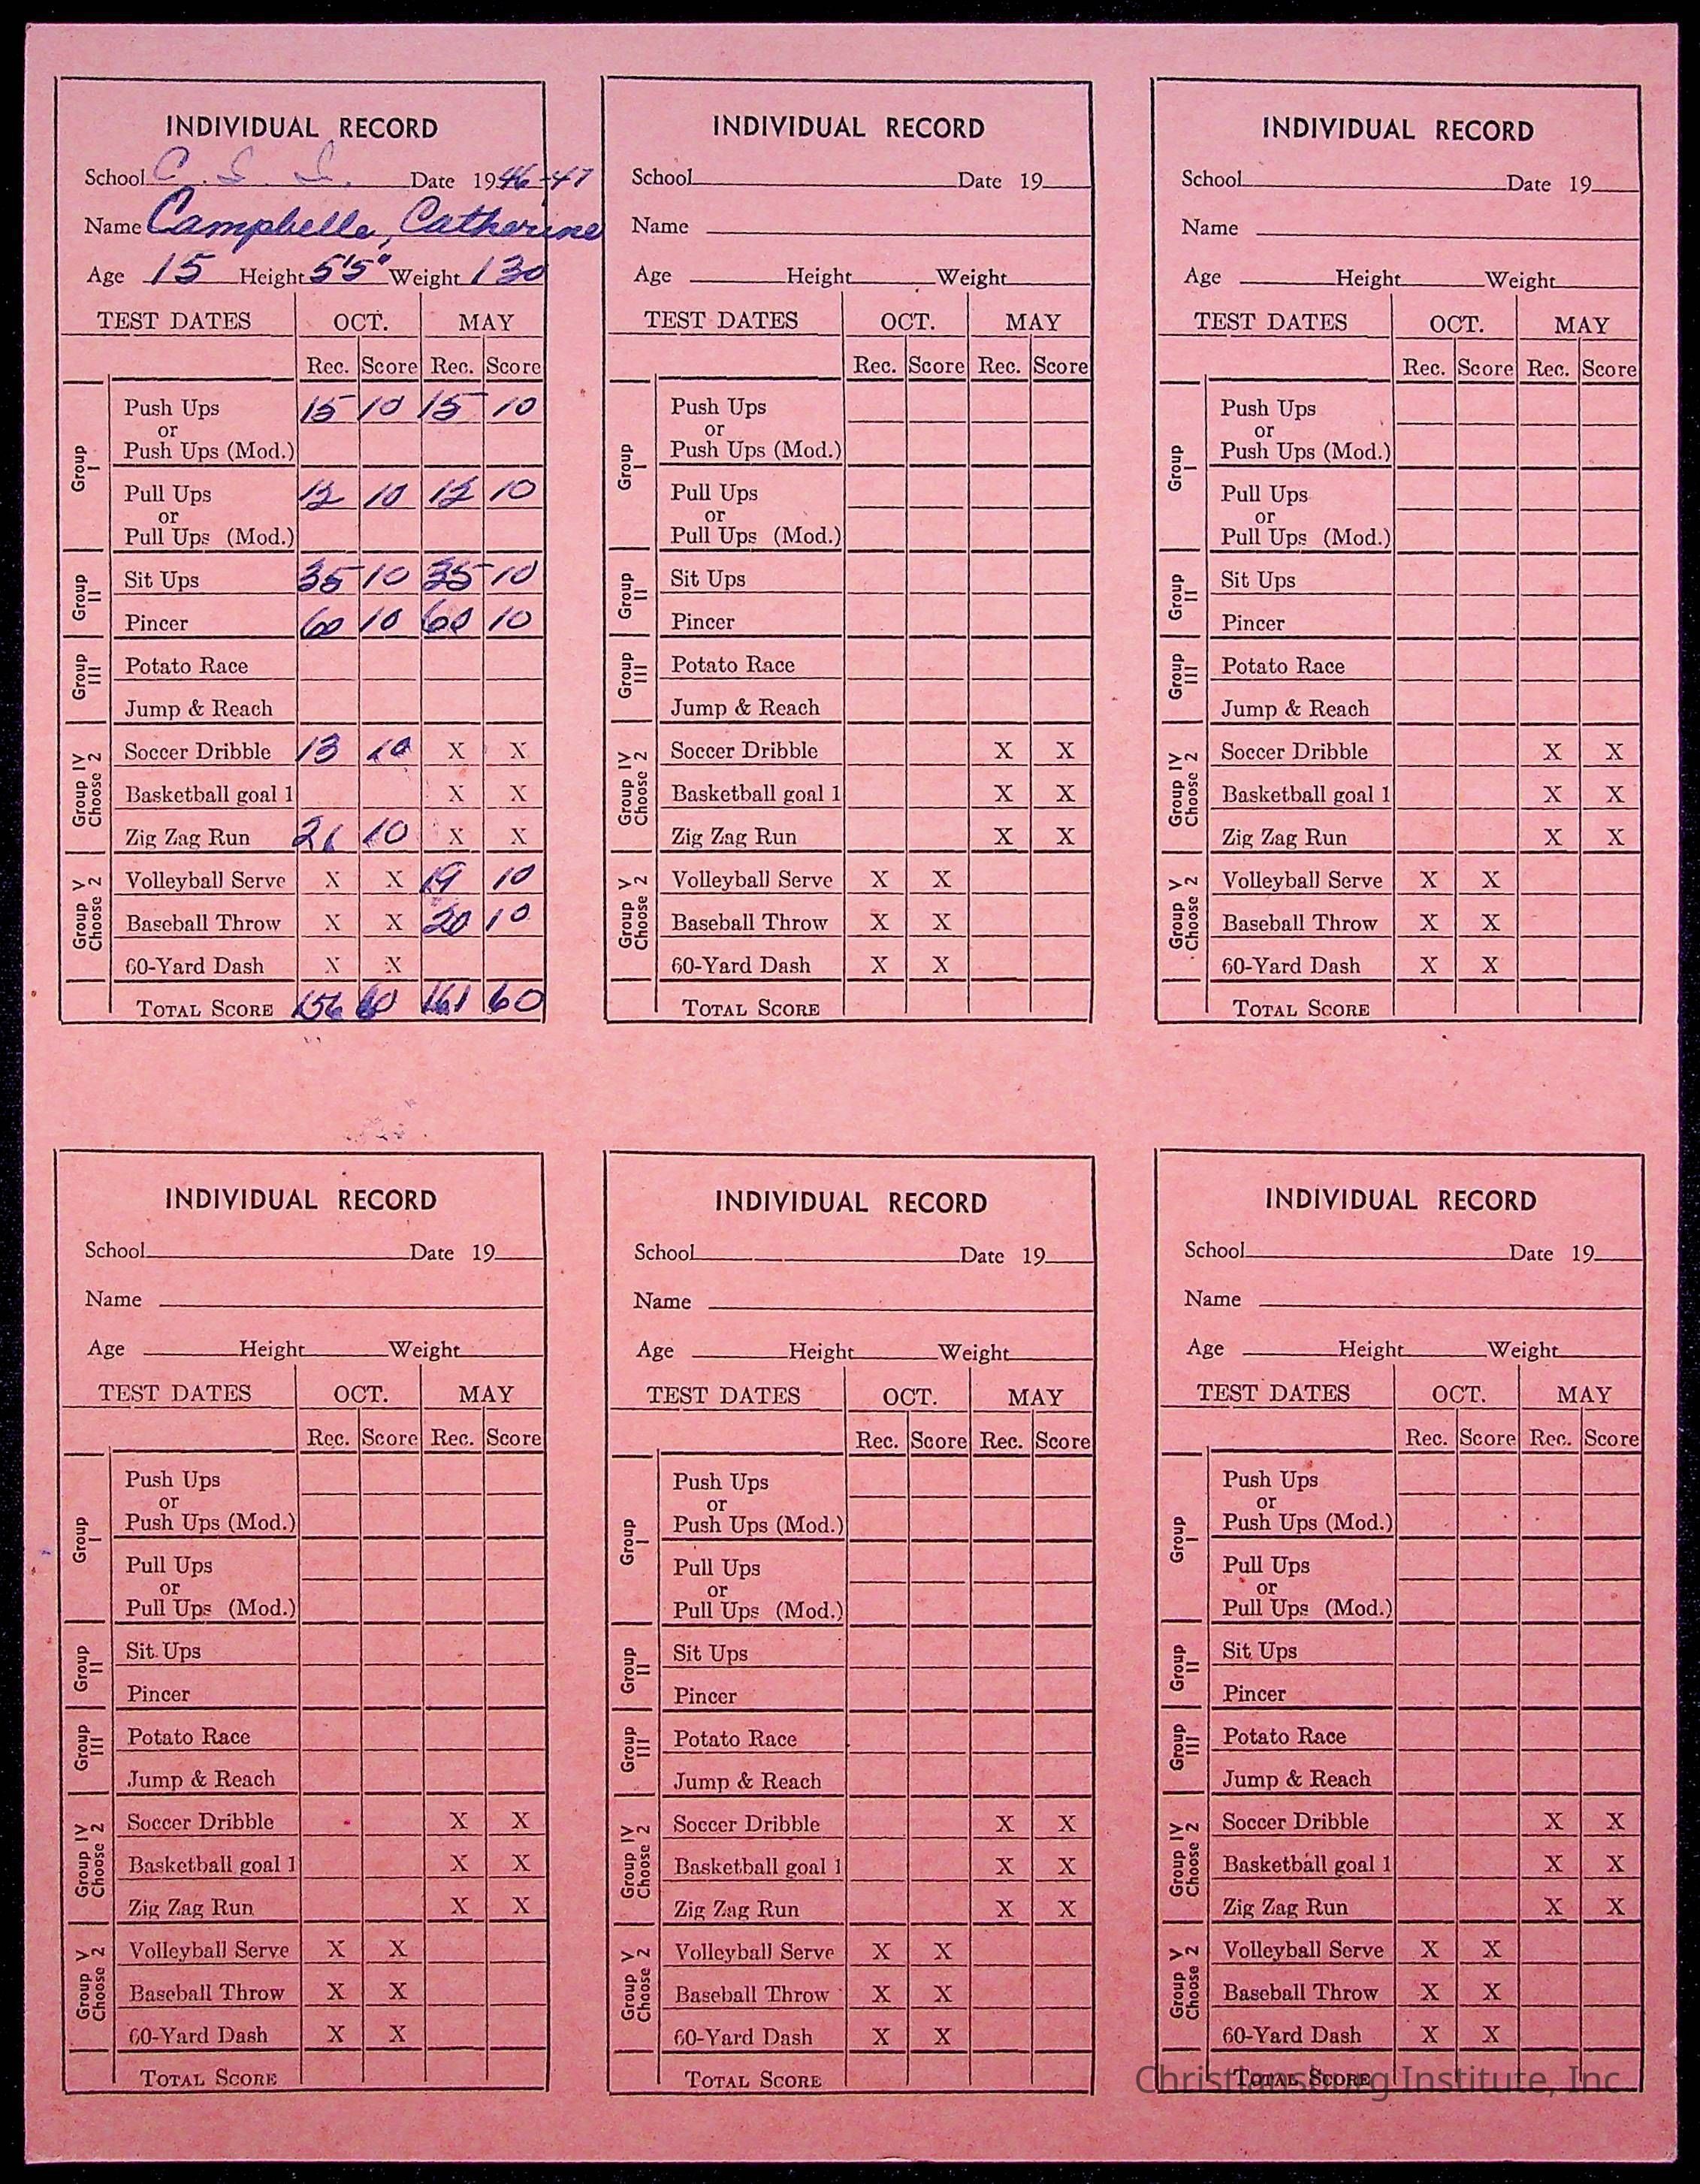 INDIVIDUAL RECORD
School C. I. I. Date 1946-47
Name Campbelle, Catherine
Age 15 Height 5'5" Weight 130
TEST DATES OCT. MAY
Rec. Score Rec. Score
Group I
Push Ups 15 10 15 10
or
Push Ups (Mod.)
Pull Ups 12 10 12 10
or
Pull Ups (Mod.)
Group II
Sit Ups 35 10 35 10
Pincer 60 10 60 10
Group III
Potato Race
Jump & Reach
Group IV Choose 2
Soccer Dribble 13 10 X X
Basketball goal 1 X X
Zig Zag Run 21 10 X X
Group V Choose 2
Volleyball Serve X X 19 10
Baseball Throw X X 20 10
60-Yard Dash X X
TOTAL SCORE 156 60 161 60
INDIVIDUAL RECORD
School Date 19
Name
Age Height Weight
TEST DATES OCT. MAY
Rec. Score Rec. Score
Group I
Push Ups
or
Push Ups (Mod.)
Pull Ups
or
Pull Ups (Mod.)
Group II
Sit Ups
Pincer
Group III
Potato Race
Jump & Reach
Group IV Choose 2
Soccer Dribble X X
Basketball goal 1 X X
Zig Zag Run X X
Group V Choose 2
Volleyball Serve X X
Baseball Throw X X
60-Yard Dash X X
TOTAL SCORE
INDIVIDUAL RECORD
School Date 19
Name
Age Height Weight
TEST DATES OCT. MAY
Rec. Score Rec. Score
Group I
Push Ups
or
Push Ups (Mod.)
Pull Ups
or
Pull Ups (Mod.)
Group II
Sit Ups
Pincer
Group III
Potato Race
Jump & Reach
Group IV Choose 2
Soccer Dribble X X
Basketball goal 1 X X
Zig Zag Run X X
Group V Choose 2
Volleyball Serve X X
Baseball Throw X X
60-Yard Dash X X
TOTAL SCORE
INDIVIDUAL RECORD
School Date 19
Name
Age Height Weight
TEST DATES OCT. MAY
Rec. Score Rec. Score
Group I
Push Ups
or
Push Ups (Mod.)
Pull Ups
or
Pull Ups (Mod.)
Group II
Sit Ups
Pincer
Group III
Potato Race
Jump & Reach
Group IV Choose 2
Soccer Dribble X X
Basketball goal 1 X X
Zig Zag Run X X
Group V Choose 2
Volleyball Serve X X
Baseball Throw X X
60-Yard Dash X X
TOTAL SCORE
INDIVIDUAL RECORD
School Date 19
Name
Age Height Weight
TEST DATES OCT. MAY
Rec. Score Rec. Score
Group I
Push Ups
or
Push Ups (Mod.)
Pull Ups
or
Pull Ups (Mod.)
Group II
Sit Ups
Pincer
Group III
Potato Race
Jump & Reach
Group IV Choose 2
Soccer Dribble X X
Basketball goal 1 X X
Zig Zag Run X X
Group V Choose 2
Volleyball Serve X X
Baseball Throw X X
60-Yard Dash X X
TOTAL SCORE
INDIVIDUAL RECORD
School Date 19
Name
Age Height Weight
TEST DATES OCT. MAY
Rec. Score Rec. Score
Group I
Push Ups
or
Push Ups (Mod.)
Pull Ups
or
Pull Ups (Mod.)
Group II
Sit Ups
Pincer
Group III
Potato Race
Jump & Reach
Group IV Choose 2
Soccer Dribble X X
Basketball goal 1 X X
Zig Zag Run X X
Group V Choose 2
Volleyball Serve X X
Baseball Throw X X
60-Yard Dash X X
TOTAL SCORE
Christiansburg Institute, Inc.